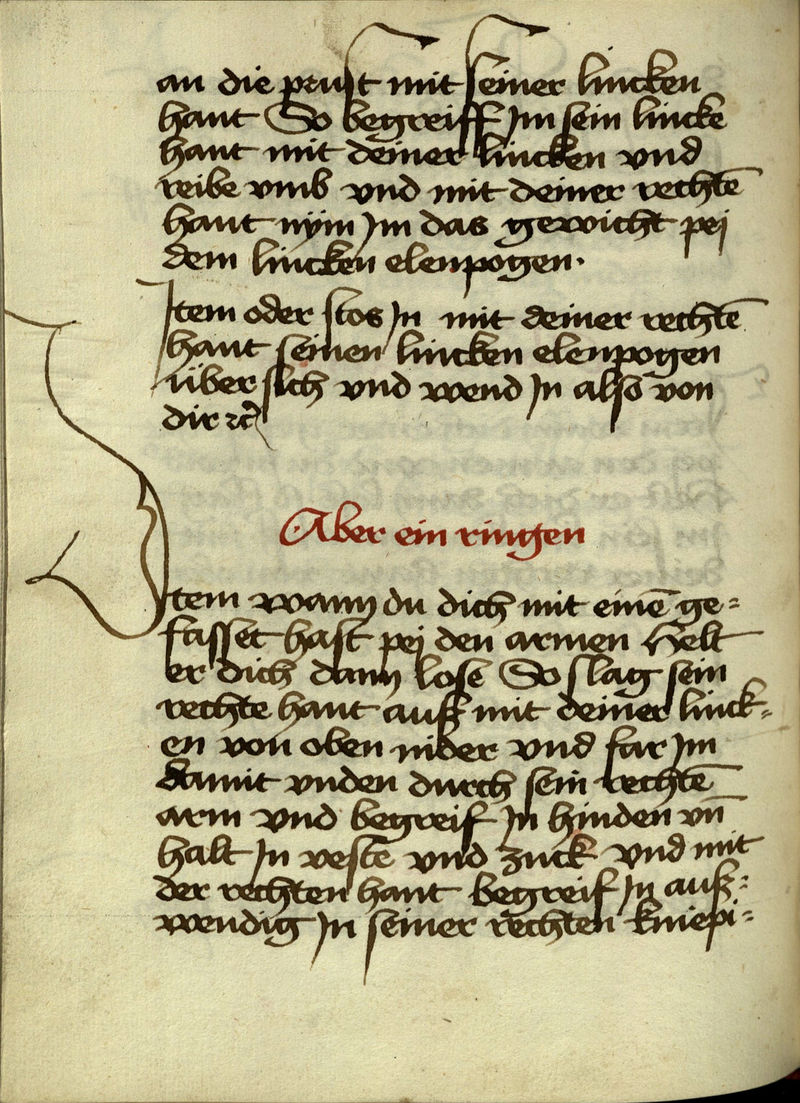 an die prust mit seiner lincken
hant So begreiff Im sein lincke
hant mit deiner lincken vnd
reibe vmb vnd mit deiner rechtē
hant nÿm Im das gewicht pei
dem lincken elenpogen.
Item oder stos In mit deiner rechtē
hant seinen lincken elenpogen
über sich vnd wend In also von
dir ꝛc̄
Aber ein ringen
Item wann du dich mit einē ge=
fasset hast pei den armen Helt
er dich dann lose So slag sein
rechte hant auß mit deiner linck=
en von oben nider vnd far Im
damit vnden durch sein rechtē
arm vnd begreif In hinden vn̄
halt In veste vnd zuck vnd mit
der rechten hant begreif In auß=
wendig In seiner rechten kniepi=